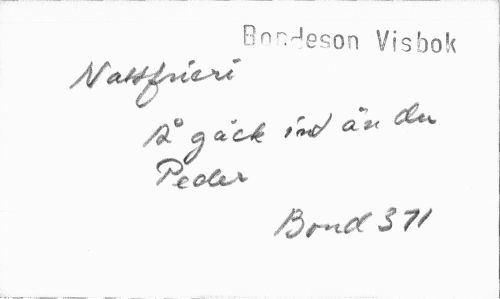 Bondeson Visbok
Nattfrieri
Så gäck in än du
Peder
Bond 371